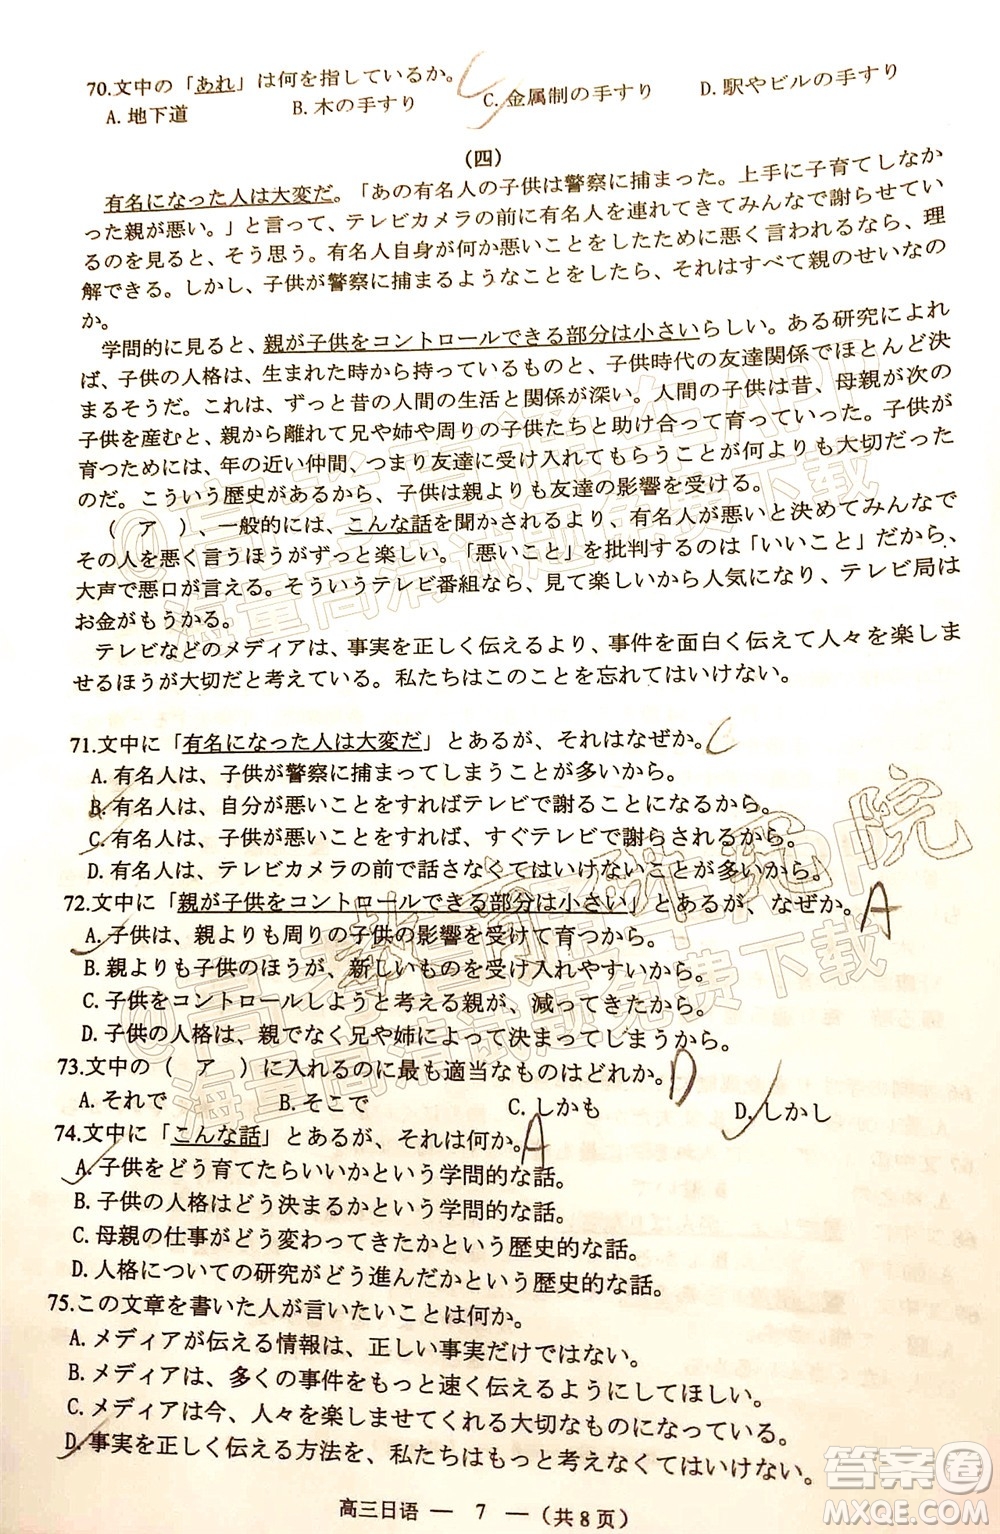 70.文中の「あれ」は何を指しているか。 C
A. 地下道 B. 木の手すり C. 金属制の手すり D. 駅やビルの手すり
(四)
有名になった人は大変だ。「あの有名人の子供は警察に捕まった。上手に子育てしなか
った親が悪い。」と言って、テレビカメラの前に有名人を連れてきてみんなで謝らせてい
るのを見ると、そう思う。有名人自身が何か悪いことをしたために悪く言われるなら、理
解できる。しかし、子供が警察に捕まるようなことをしたら、それはすべて親のせいなの
か。
学問的に見ると、親が子供をコントロールできる部分は小さいらしい。ある研究によれ
ば、子供の人格は、生まれた時から持っているものと、子供時代の友達関係でほとんど決
まるそうだ。これは、ずっと昔の人間の生活と関係がある。人間の子供は昔、母親が次の
子供を産むと、親から離れて兄や姉や周りの子供たちと助け合って育っていった。子供が
育つためには、年の近い仲間、つまり友達に受け入れてもらうことが何よりも大切だった
のだ。こういう歴史があるから、子供は親よりも友達の影響を受ける。
( ア )、一般的には、こんな話を聞かされるより、有名人が悪いと決めてみんなで
その人を悪く言うほうがずっと楽しい。「悪いこと」を批判するのは「いいこと」だから、
大声で悪口が言える。そういうテレビ番組なら、見て楽しいから人気になり、テレビ局は
お金がもうかる。
テレビなどのメディアは、事実を正しく伝えるより、事件を面白く伝えて人々を楽しま
せるほうが大切だと考えている。私たちはこのことを忘れてはいけない。
71.文中に「有名になった人は大変だ」とあるが、それはなぜか。 C
A. 有名人は、子供が警察に捕まってしまうことが多いから。
B. 有名人は、自分が悪いことをすればテレビで謝ることになるから。
C. 有名人は、子供が悪いことをすれば、すぐテレビで謝らされるから。
D. 有名人は、テレビカメラの前で話さなくてはいけないことが多いから。
72.文中に「親が子供をコントロールできる部分は小さい」とあるが、なぜか。 A
A. 子供は、親よりも周りの子供の影響を受けて育つから。
B. 親よりも子供のほうが、新しいものを受け入れやすいから。
C. 子供をコントロールしようと考える親が、減ってきたから。
D. 子供の人格は、親でなく兄や姉によって決まってしまうから。
73.文中の( ア )に入れるのに最も適当なものはどれか。 D
A. それで B. そこで C. しかも D. しかし
74.文中に「こんな話」とあるが、それは何か。 A
A. 子供をどう育てたらいいかという学問的な話。
B. 子供の人格はどう決まるかという学問的な話。
C. 母親の仕事がどう変わってきたかという歴史的な話。
D. 人格についての研究がどう進んだかという歴史的な話。
75.この文章を書いた人が言いたいことは何か。
A. メディアが伝える情報は、正しい事実だけではない。
B. メディアは、多くの事件をもっと速く伝えるようにしてほしい。
C. メディアは今、人々を楽しませてくれる大切なものになっている。
D. 事実を正しく伝える方法を、私たちはもっと考えなくてはいけない。
高三日语 — 7 —(共8页)
答案圈
MXQE.COM